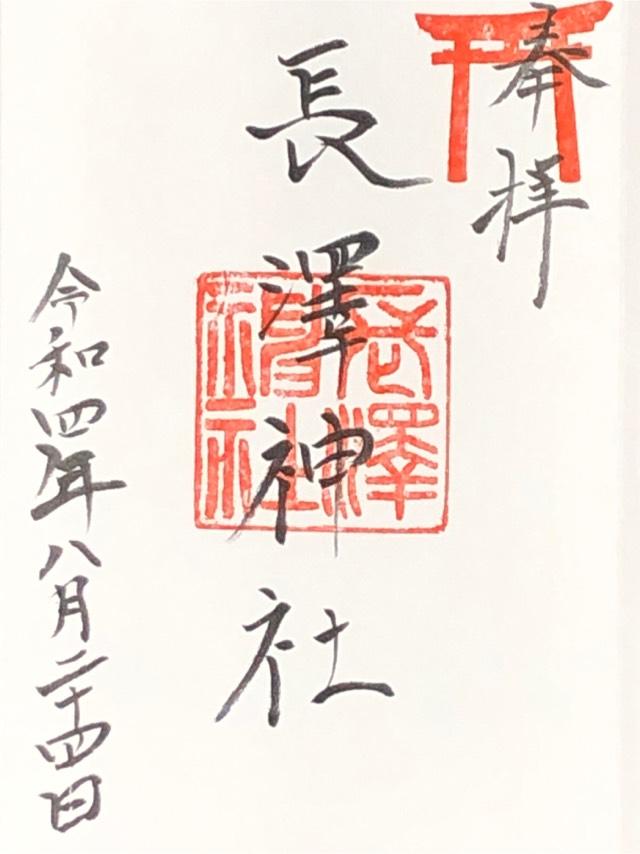 奉拝
長澤神社
長澤神社
令和四年八月二十四日